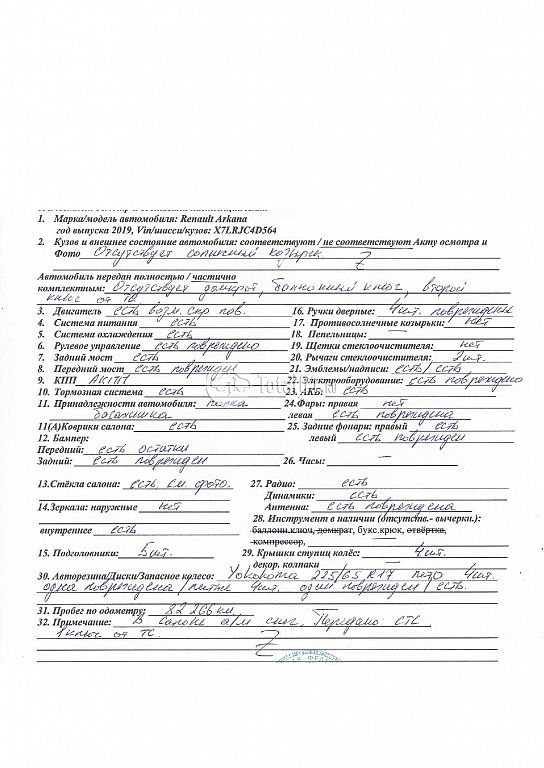 1. Марка/модель автомобиля: Renault Arkana
год выпуска 2019, Vin/шасси/кузов: X7LRJC4D564
2. Кузов и внешнее состояние автомобиля: соответствуют / не соответствуют Акту осмотра и
Фото Отсутствует солнечный козырек
Автомобиль передан полностью / частично
комплектным: Отсутствует домкрат, баллонный ключ, второй
ключ от ТС
3. Двигатель есть возм. скр пов. 16. Ручки дверные: 4шт. повреждены
4. Система питания есть 17. Противосолнечные козырьки: нет
5. Система охлаждения есть 18. Пепельницы: —
6. Рулевое управление есть повреждено 19. Щетки стеклоочистителя: нет
7. Задний мост есть 20. Рычаги стеклоочистителя: 2шт.
8. Передний мост есть поврежден 21. Эмблемы/надписи: есть / есть
9. КПП АКПП 22. Электрооборудование: есть повреждено
10. Тормозная система есть 23. АКБ: есть
11. Принадлежности автомобиля: полка 24.Фары: правая нет
багажника левая есть повреждена
11(А)Коврики салона: есть 25. Задние фонари: правый есть
12. Бампер: левый есть поврежден
Передний: есть остатки
Задний: есть поврежден 26. Часы: —
13.Стёкла салона: есть, см. фото. 27. Радио: есть
Динамики: есть
14.Зеркала: наружные нет Антенна: есть повреждена
28. Инструмент в наличии (отсутств.- вычеркн.):
внутреннее есть баллонн.ключ, домкрат, букс.крюк, отвёртка,
компрессор,
15. Подголовники: 5шт. 29. Крышки ступиц колёс: 4шт.
декор. колпаки —
30. Авторезина/Диски/Запасное колесо: Yokohama 225/65 R17 лето 4шт.
одна повреждена / литые 4шт. один поврежден / есть.
31. Пробег по одометру: 82 266 км.
32. Примечание: В салоне а/м снег, Передано СТС
1 ключ от ТС.